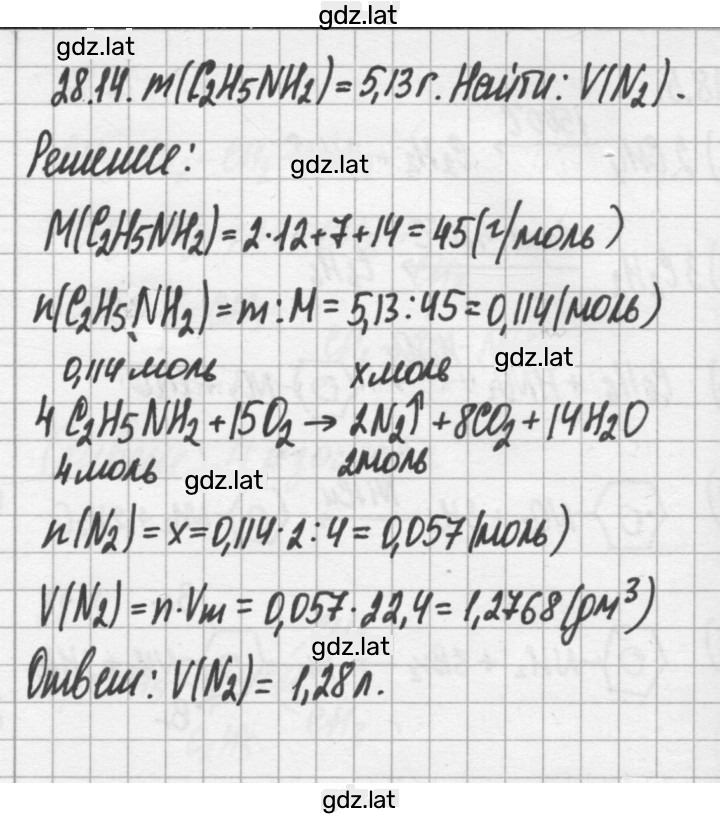 gdz.lat
gdz.lat
28.14. m(C₂H₅NH₂) = 5,13 г. Найти: V(N₂).
Решение:
gdz.lat
M(C₂H₅NH₂) = 2·12+7+14 = 45 (г/моль)
n(C₂H₅NH₂) = m : M = 5,13 : 45 = 0,114 (моль)
gdz.lat
0,114 моль x моль
4 C₂H₅NH₂ + 15O₂ → 2N₂↑ + 8CO₂ + 14H₂O
4 моль 2 моль
gdz.lat
n(N₂) = x = 0,114·2 : 4 = 0,057 (моль)
V(N₂) = n·Vm = 0,057·22,4 = 1,2768 (дм³)
gdz.lat
Ответ: V(N₂) = 1,28 л.
gdz.lat